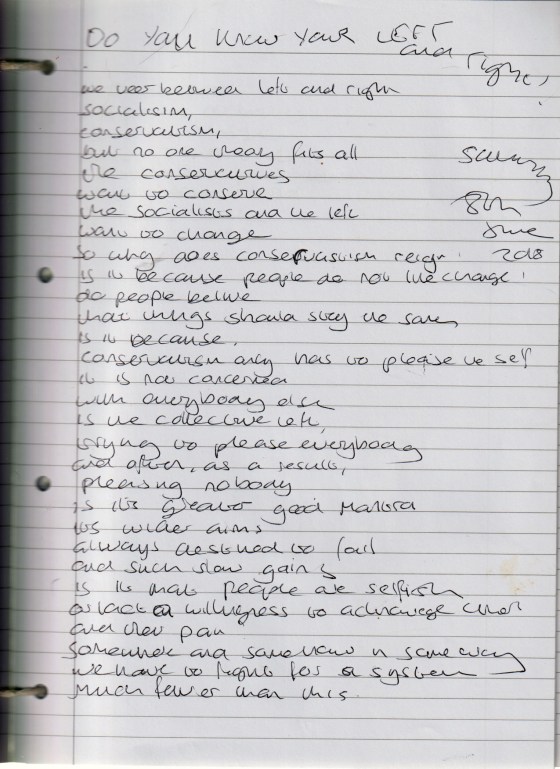 Do You Know Your LEFT
and right,
we veer between left and right
socialism,
conservatism,
but no one theory fits all
the conservatives
want to conserve
the socialists and the left
want to change
So why does conservatism reign.
is it because people do not like change!
do people believe
that things should stay the same,
is it because.
conservatism only has to please the self
it is not concerned
with everybody else
is the collective left,
trying to please everybody
and often, as a result,
pleasing nobody
is its greater good Mantra
its wider aims
always destined to fail
and such slow gains
is it that people are selfish
a lack of willingness to acknowledge
and their pain
Somewhere and somehow in some way
we have to fight for a system
Much fairer than this.
8th
June
2018